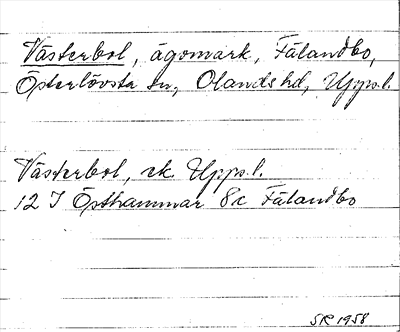 Västerbol, ägomark, Fälandbo,
Österlövsta sn, Olands hd, Upps.l.
Västerbol, ek Upps.l.
12 I Östhammar 8c Fälandbo
SR 1958